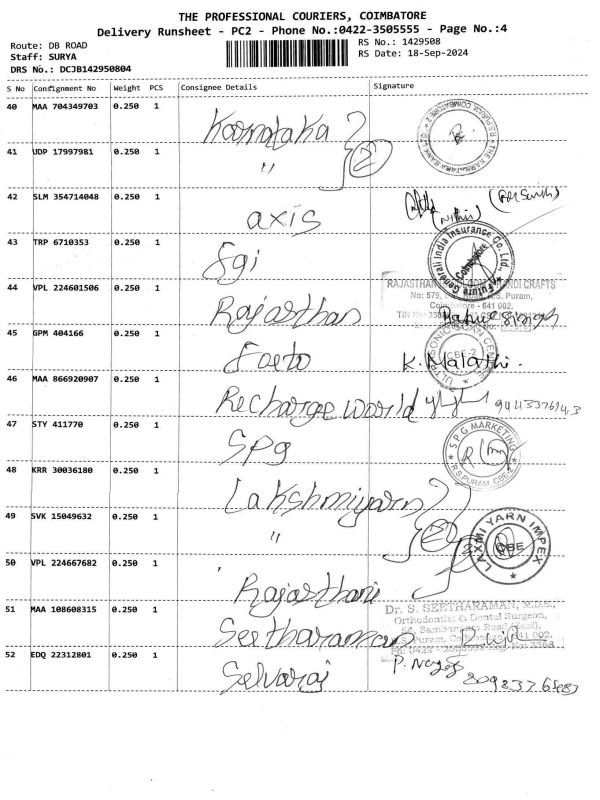 THE PROFESSIONAL COURIERS, COIMBATORE
Delivery Runsheet - PC2 - Phone No.:0422-3505555 - Page No.:4
Route: DB ROAD
Staff: SURYA
DRS No.: DCJB142950804
RS No.: 1429508
RS Date: 18-Sep-2024
S No Consignment No Weight PCS Consignee Details Signature
40 MAA 704349703 0.250 1 Karnataka
41 UDP 17997981 0.250 1 "
2
42 SLM 354714048 0.250 1 axis
43 TRP 6710353 0.250 1 Fgi
Future Generali India Insurance Co. Ltd.
Coimbatore
44 VPL 224601506 0.250 1 Rajasthan
RAJASTHAN
CRAFTS
No: 579, R.S. Puram,
Coimbatore - 641 002.
45 GPM 404166 0.250 1
K. Malathi.
46 MAA 866920907 0.250 1 Recharge world
47 STY 411770 0.250 1 SPg
SPG MARKETING
R.S. PURAM, CBE-2
48 KRR 30036180 0.250 1 Lakshmiyarn
49 SVK 15049632 0.250 1 "
2
LAXMI YARN IMPEX
CBE
50 VPL 224667682 0.250 1 Rajasthani
51 MAA 108608315 0.250 1 Seetharaman
Dr. S. SEETHARAMAN, M.D.S.,
Orthodontist & Dental Surgeon,
52 EDQ 22312801 0.250 1 Selvaraj